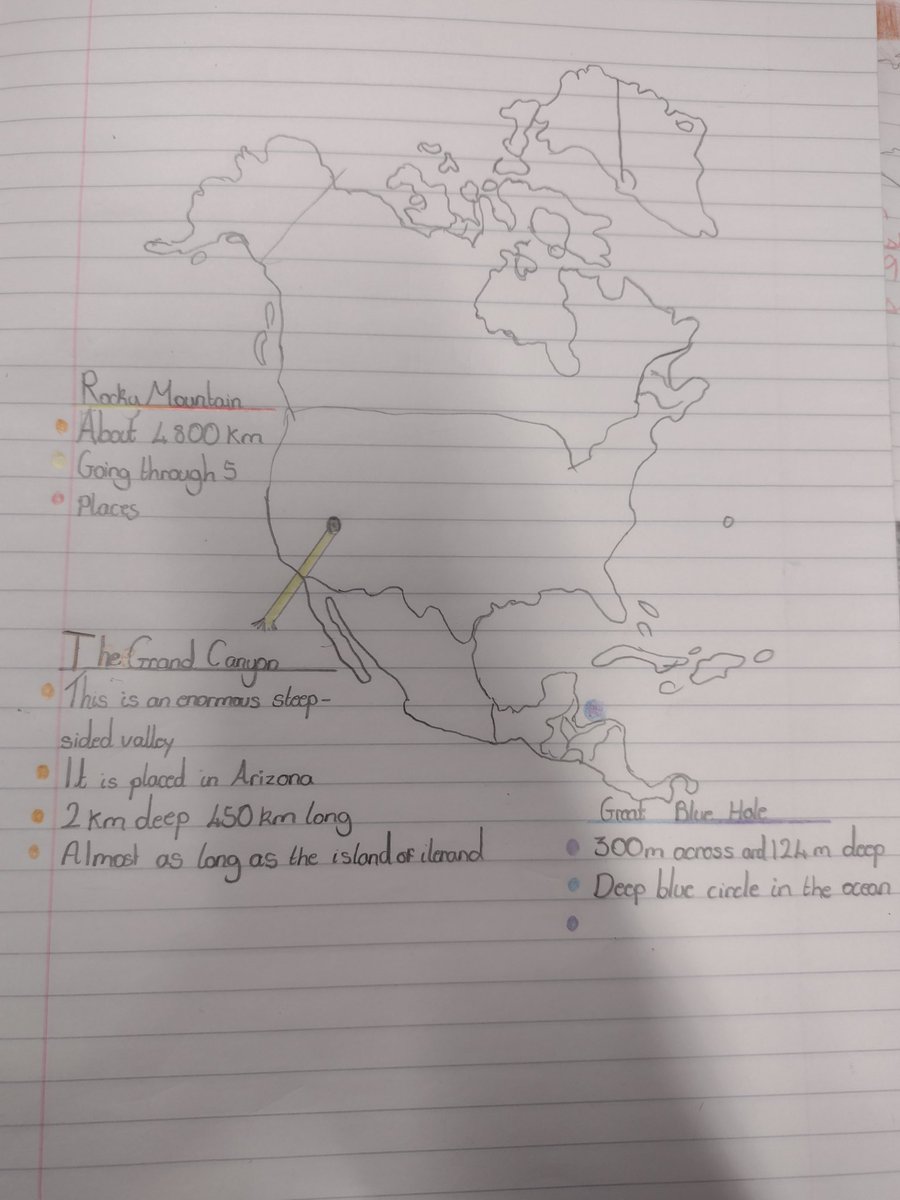 Rocky Mountain
About 4800 km
Going through 5
Places
The Grand Canyon
This is an enormous steep-
sided valley
It is placed in Arizona
2 km deep 450 km long
Almost as long as the island of ilerand
Great Blue Hole
300m across and 124 m deep
Deep blue circle in the ocean